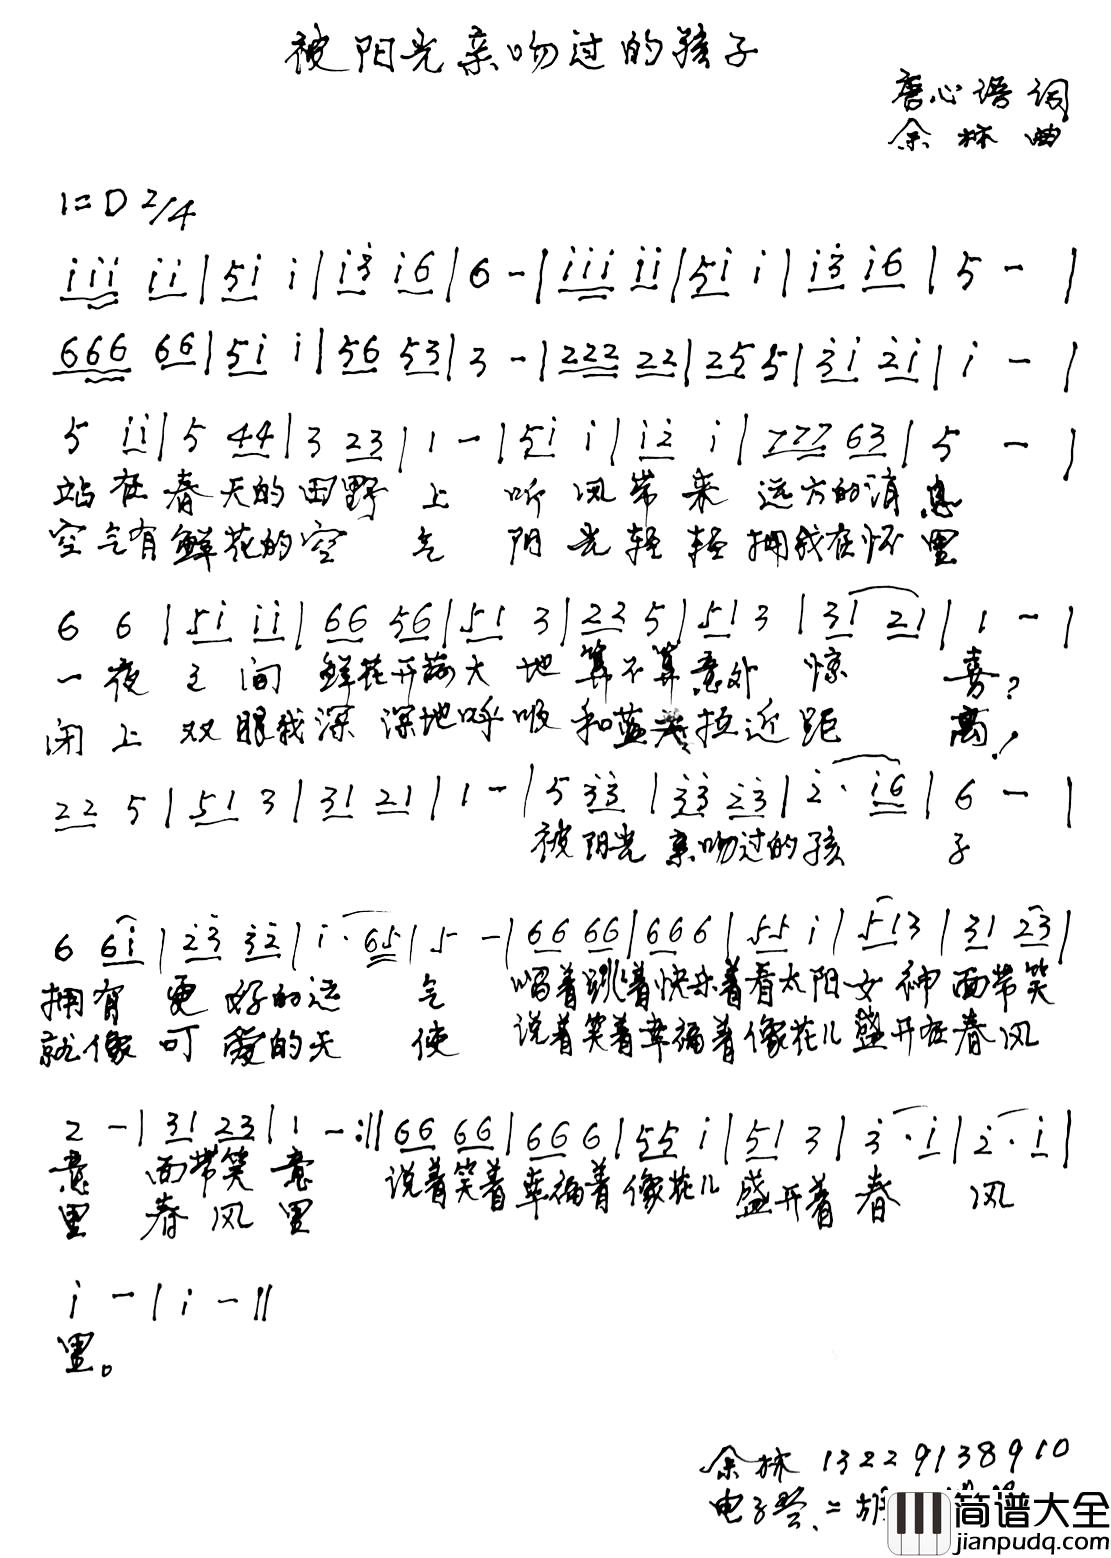 被阳光亲吻过的孩子
唐心语 词
余林 曲
1=D 2/4
i i i i i | 5 i i | i 3̇ i 6 | 6 - | i i i i i | 5 i i | i 3̇ i 6 | 5 - |
6 6 6 6 6 | 5 i i | 5 6 5 3 | 3 - | 2 2 2 2 2 | 2 5 5 | 3̇ i 2̇ i | i - |
5 i i | 5 4 4 | 3 2 3 | 1 - | 5 i i | i 2̇ i | 7 7 7 6 3 | 5 - |
站在春天的田野上 听风带来远方的消息
空气有鲜花的空气 阳光轻轻拥我在怀里
6 6 | 5 i i i | 6 6 5 6 | 5 1 3 | 2 2 5 | 5 1 3 | 3 1 2 1 | 1 - |
一夜之间鲜花开满大地算不算意外惊喜?
闭上双眼我深深地呼吸和蓝天拉近距离!
2 2 5 | 5 1 3 | 3 1 2 1 | 1 - | 5 3̇ 3̇ | 3̇ 3̇ 2̇ 3̇ | 2̇ · i 6 | 6 - |
被阳光亲吻过的孩子
6 6 i | 2̇ 3̇ 3̇ 2̇ | i · 6 5 | 5 - | 6 6 6 6 | 6 6 6 | 5 5 i | 5 1 3 | 3 1 2 3 |
拥有更好的运气 唱着跳着快乐着看太阳女神面带笑
就像可爱的天使 说着笑着幸福着像花儿盛开在春风
2 - | 3 1 2 3 | 1 - :|| 6 6 6 6 | 6 6 6 | 5 5 i | 5 1 3 | 3̇ · i | 2̇ · i |
意 面带笑意 说着笑着幸福着像花儿盛开着春风
里 春风里
i - | i - ||
里。
余林 13229138910
电子
简谱大全
jianpudq.com